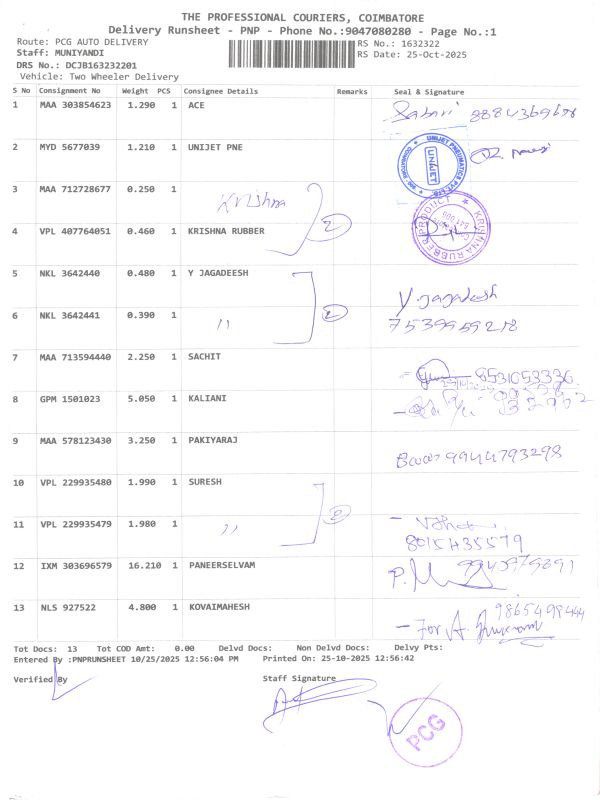 THE PROFESSIONAL COURIERS, COIMBATORE
Delivery Runsheet - PNP - Phone No.:9047080280 - Page No.:1
Route: PCG AUTO DELIVERY RS No.: 1632322
Staff: MUNIYANDI RS Date: 25-Oct-2025
DRS No.: DCJB163232201
Vehicle: Two Wheeler Delivery
S No Consignment No Weight PCS Consignee Details Remarks Seal & Signature
1 MAA 303854623 1.290 1 ACE
2 MYD 5677039 1.210 1 UNIJET PNE UNIJET
3 MAA 712728677 0.250 1 Krishna
4 VPL 407764051 0.460 1 KRISHNA RUBBER 2
KRISHNA RUBBER PRODUCT
5 NKL 3642440 0.480 1 Y JAGADEESH Y. Jagadesh
6 NKL 3642441 0.390 1 " 2 7539959218
7 MAA 713594440 2.250 1 SACHIT 8531053336
8 GPM 1501023 5.050 1 KALIANI
9 MAA 578123430 3.250 1 PAKIYARAJ 9944793298
10 VPL 229935480 1.990 1 SURESH
11 VPL 229935479 1.980 1 " 2
8015435579
12 IXM 303696579 16.210 1 PANEERSELVAM
13 NLS 927522 4.800 1 KOVAIMAHESH 9865499444
For A.
Tot Docs: 13 Tot COD Amt: 0.00 Delvd Docs: Non Delvd Docs: Delvy Pts:
Entered By :PNPRUNSHEET 10/25/2025 12:56:04 PM Printed On: 25-10-2025 12:56:42
Verified By Staff Signature
PCG